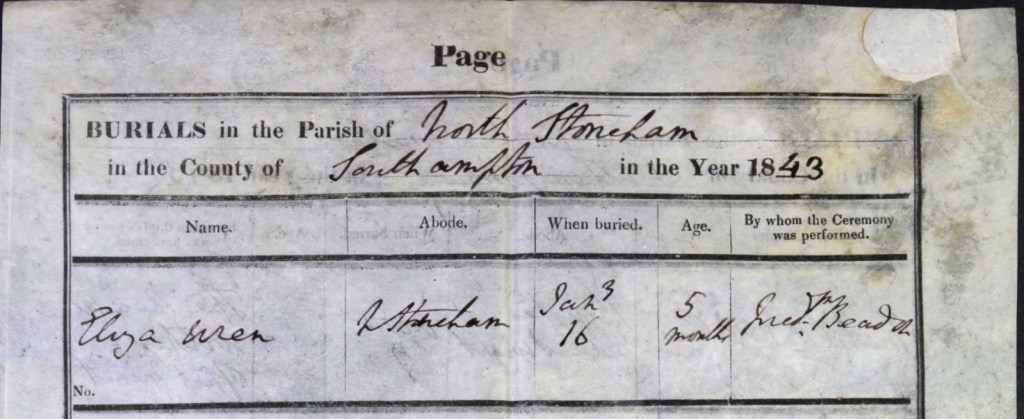 Page
BURIALS in the Parish of North Stoneham
in the County of Southampton in the Year 1843
Name. Abode. When buried. Age. By whom the Ceremony was performed.
Eliza Wren N Stoneham Jan 16 5 months Fred.
No.